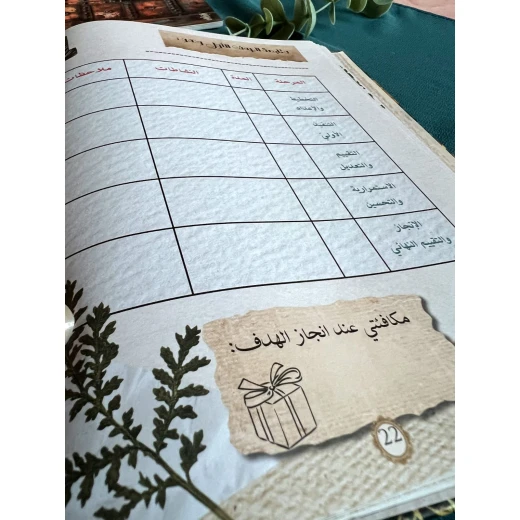 المرحلة المدة النشاطات ملاحظات
التخطيط
والإعداد
التنفيذ
الأولي
التقييم
والتعديل
الاستمرارية
والتحسين
الإنجاز
والتقييم النهائي
مكافئتي عند انجاز الهدف:
22